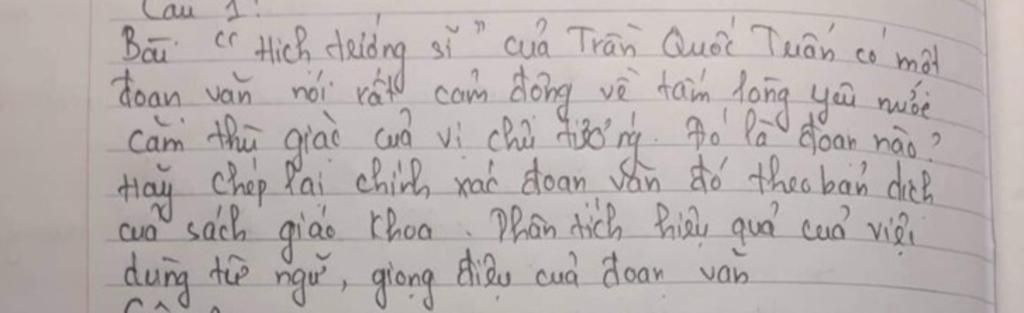 Câu 1:
Bài "Hịch tướng sĩ" của Trần Quốc Tuấn có một
đoạn văn nói rất cảm động về tấm lòng yêu nước
căm thù giặc của vị chủ tướng. Đó là đoạn nào?
Hãy chép lại chính xác đoạn văn đó theo bản dịch
của sách giáo khoa. Phân tích hiệu quả của việc
dùng từ ngữ, giọng điệu của đoạn văn